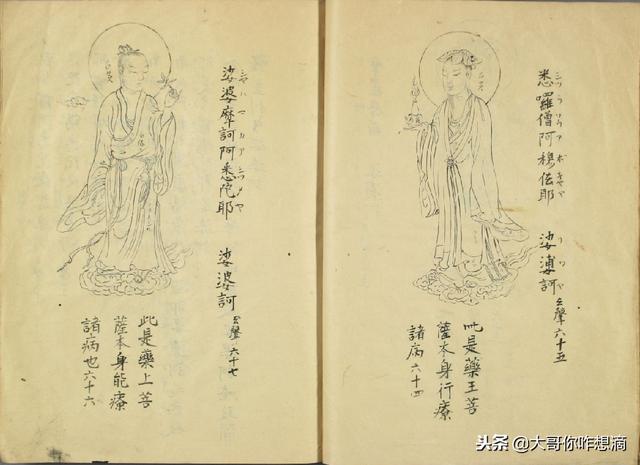 悉囉僧阿穆佉耶 娑婆訶 六十五
此是藥王菩
薩本身行療
諸病六十四
娑婆摩訶阿悉陀耶 娑婆訶 六十七
此是藥上菩
薩本身能療
諸病也六十六
头条 @大哥你咋想滴